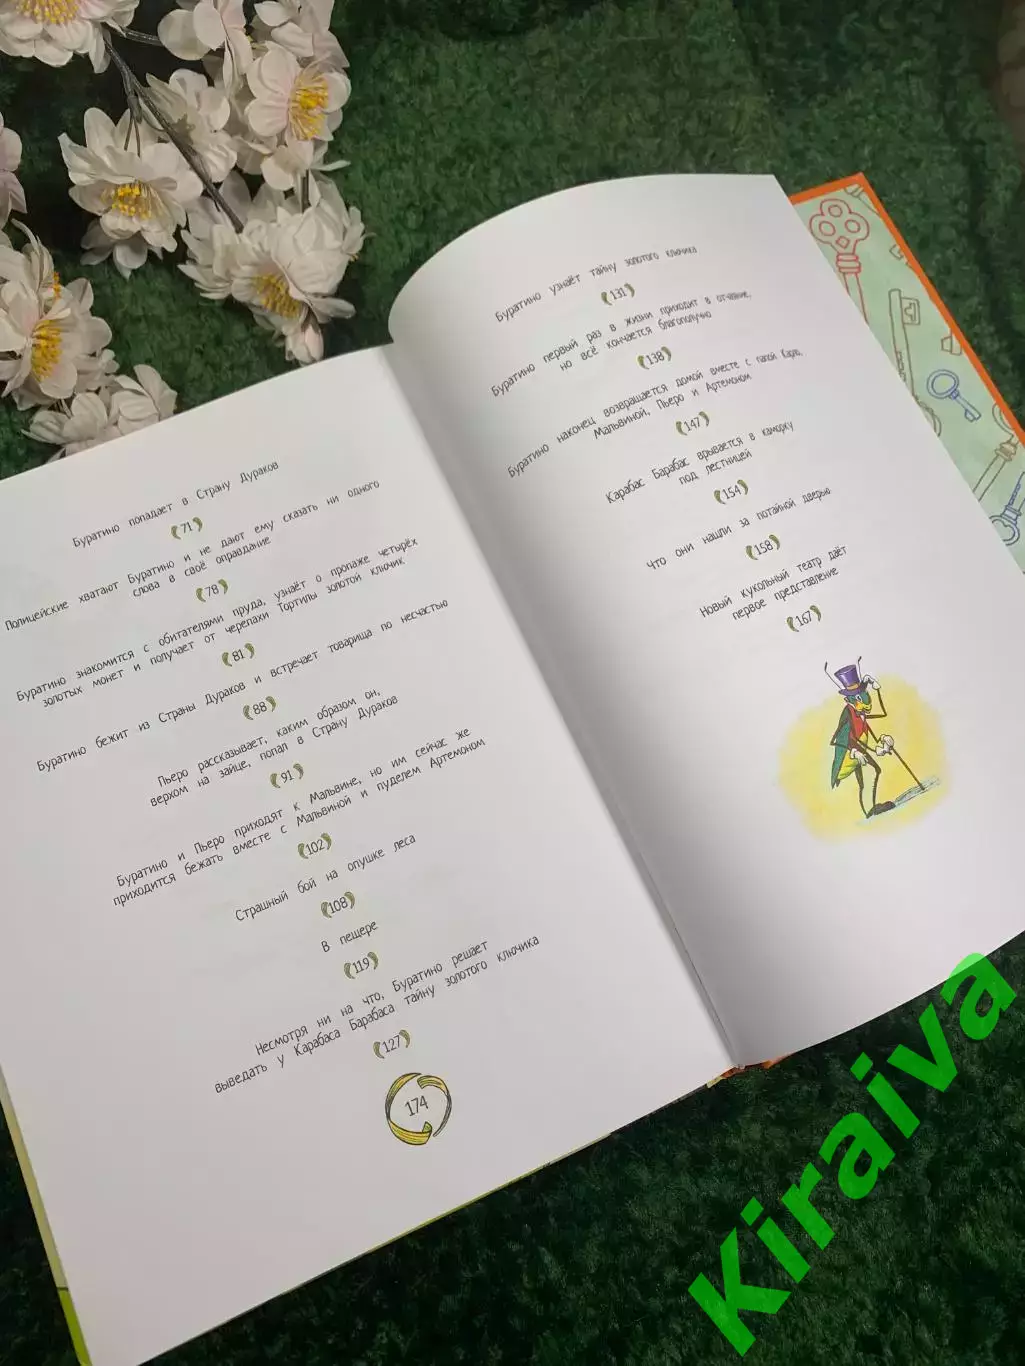 Буратино попадает в Страну Дураков
(71)
Полицейские хватают Буратино и не дают ему сказать ни одного
слова в своё оправдание
(78)
Буратино знакомится с обитателями пруда, узнаёт о пропаже четырёх
золотых монет и получает от черепахи Тортилы золотой ключик
(81)
Буратино бежит из Страны Дураков и встречает товарища по несчастью
(88)
Пьеро рассказывает, каким образом он,
верхом на зайце, попал в Страну Дураков
(91)
Буратино и Пьеро приходят к Мальвине, но им сейчас же
приходится бежать вместе с Мальвиной и пуделем Артемоном
(102)
Страшный бой на опушке леса
(108)
В пещере
(119)
Несмотря ни на что, Буратино решает
выведать у Карабаса Барабаса тайну золотого ключика
(127)
174
Буратино узнаёт тайну золотого ключика
(131)
Буратино первый раз в жизни приходит в отчаяние,
но всё кончается благополучно
(138)
Буратино наконец возвращается домой вместе с папой Карло,
Мальвиной, Пьеро и Артемоном
(147)
Карабас Барабас врывается в каморку
под лестницей
(154)
Что они нашли за потайной дверью
(158)
Новый кукольный театр даёт
первое представление
(167)
Kiraiva